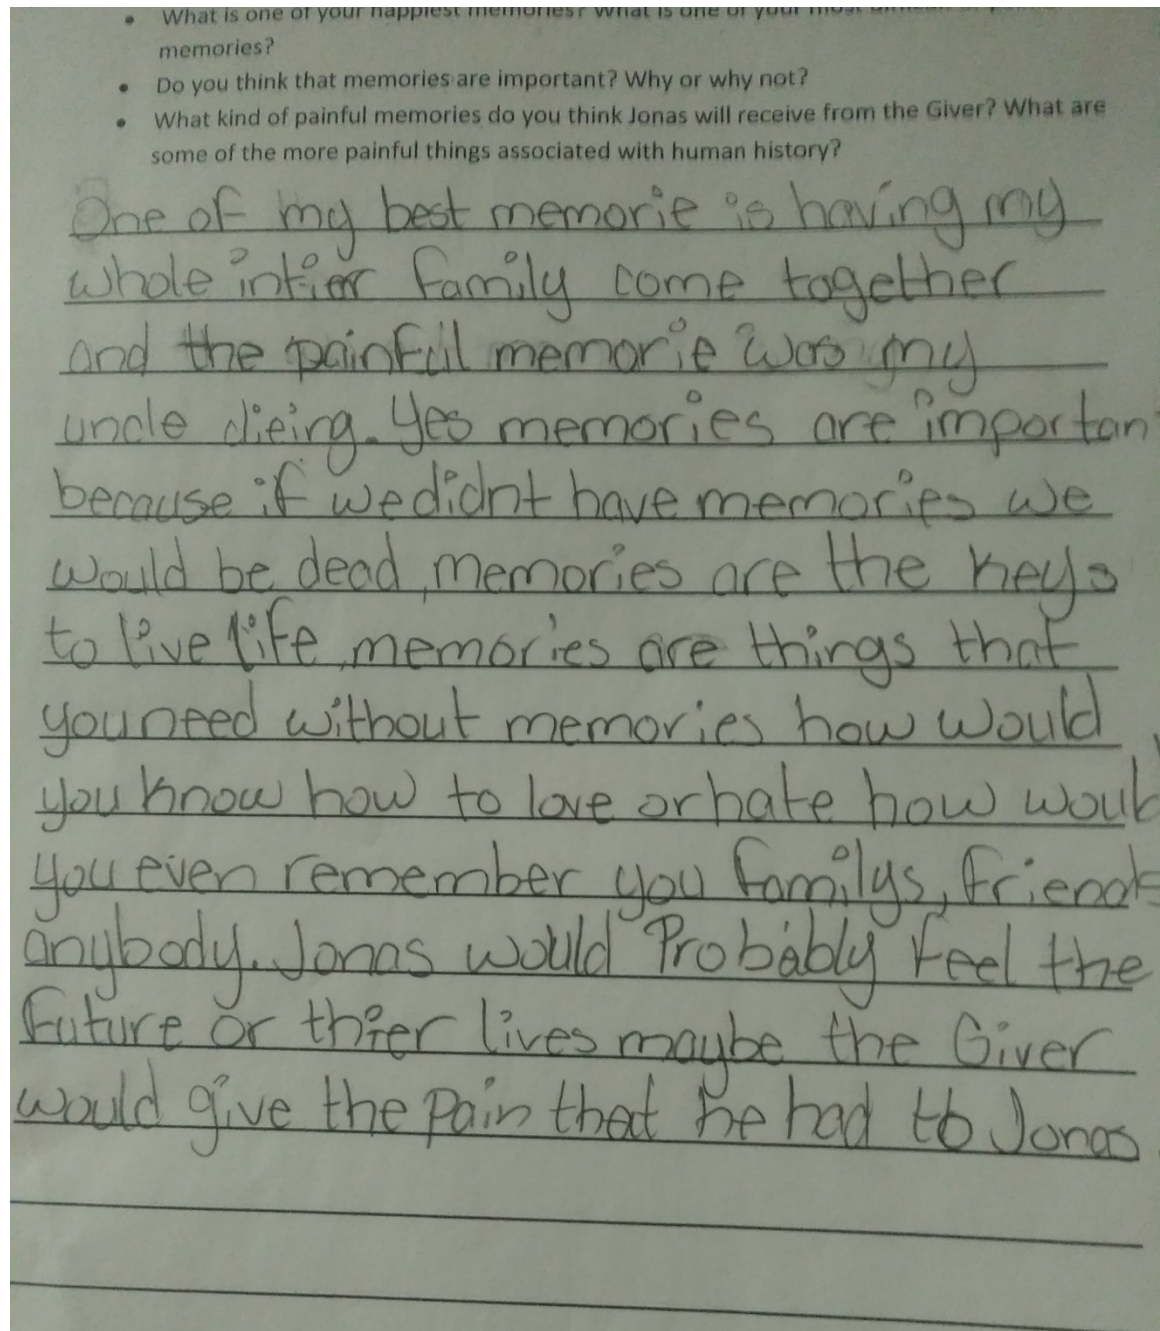 What is one of your happiest memories? What is one of your most
memories?
Do you think that memories are important? Why or why not?
What kind of painful memories do you think Jonas will receive from the Giver? What are
some of the more painful things associated with human history?
One of my best memorie is having my
whole intier family come together
and the painful memorie was my
uncle dieing. Yes memories are importan
because if we didnt have memories we
would be dead, memories are the keys
to live life, memories are things that
you need without memories how would
you know how to love or hate how woul
you even remember you familys, friends
anybody. Jonas would Probably feel the
future or thier lives maybe the Giver
would give the pain that he had to Jonas